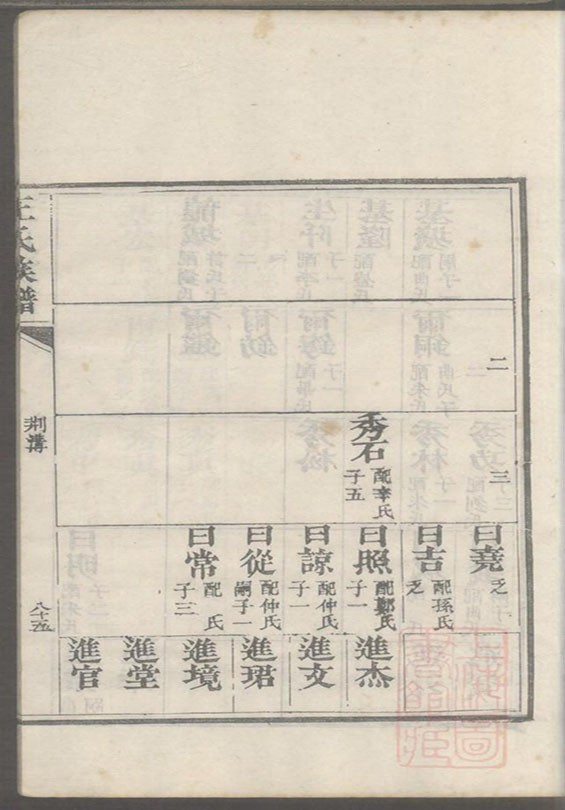 二
三
曰堯
乏
曰吉
配孫氏
乏
秀石
配辛氏
子五
曰照
配鄭氏
子一
進杰
曰諒
配仲氏
子一
進文
曰從
配仲氏
嗣子一
進珺
曰常
配　氏
子三
進境
進堂
進官
王氏族譜
荆溝
八十五